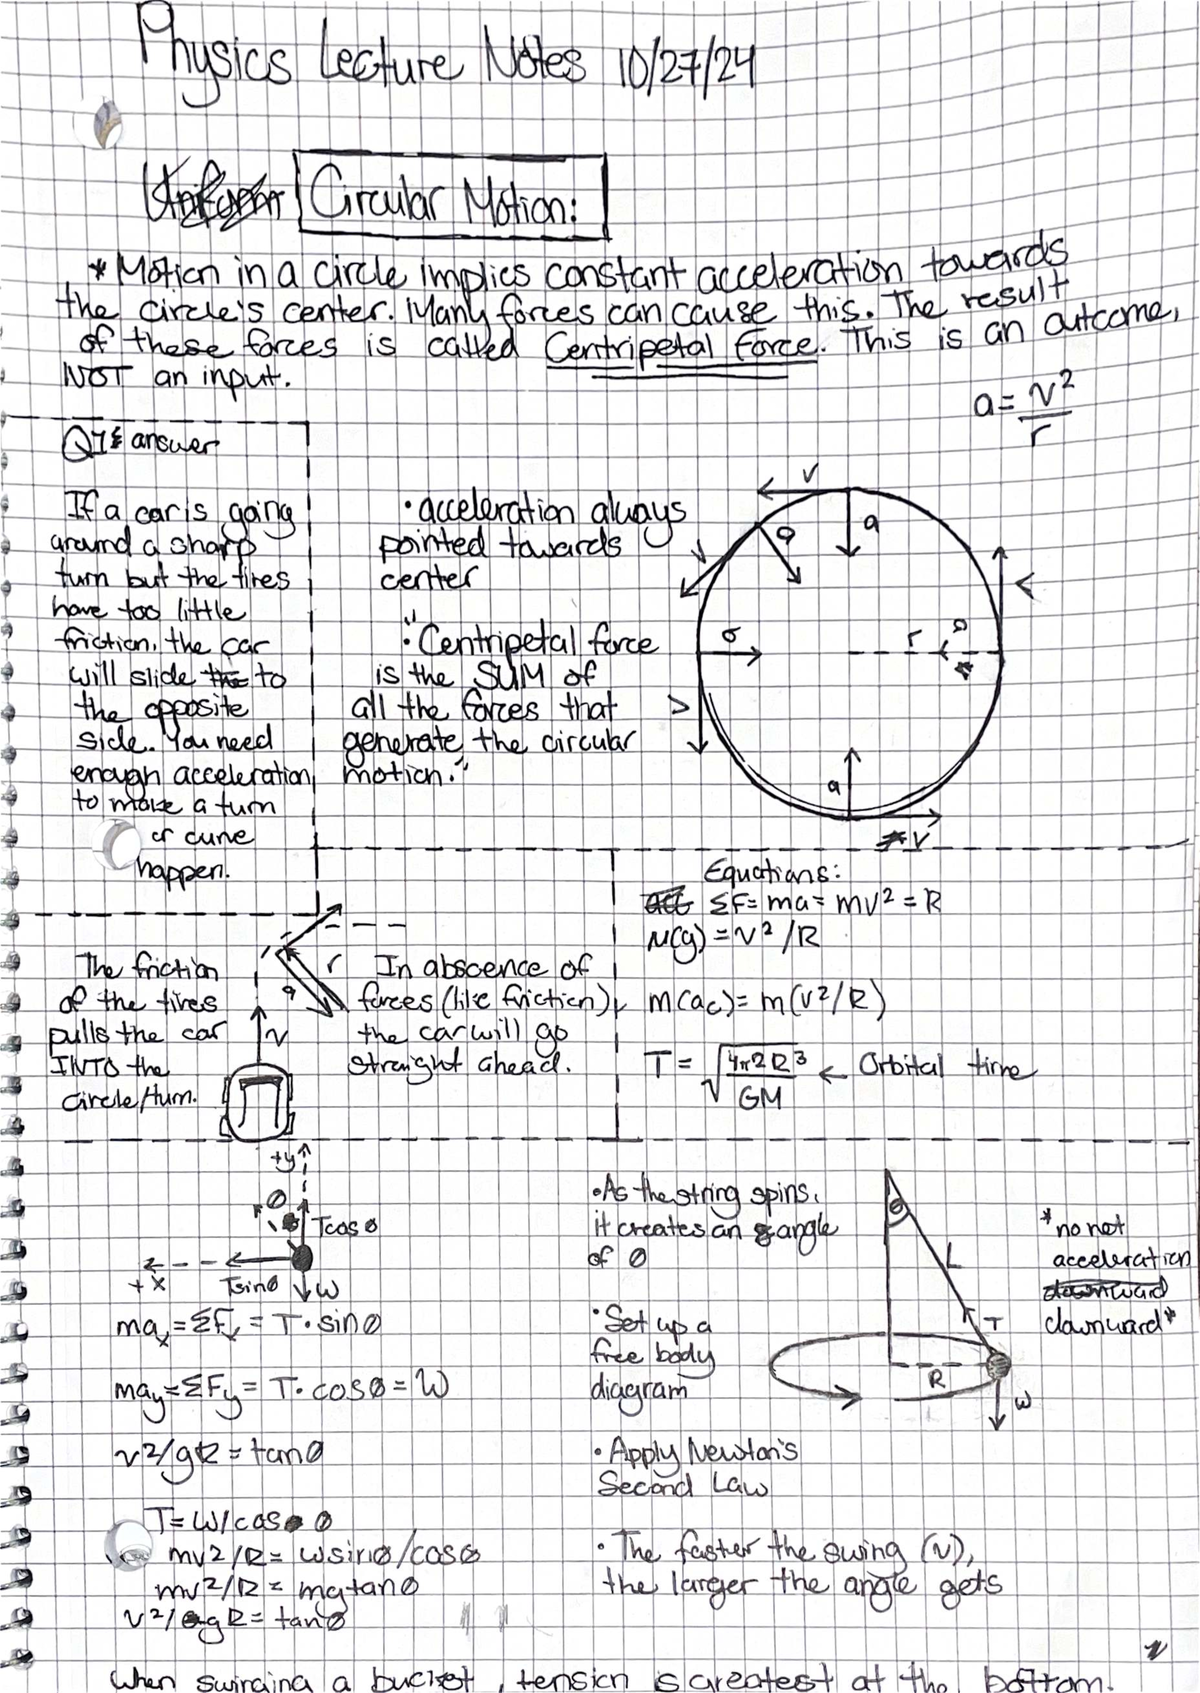 Physics Lecture Notes 10/27/24
Uniform Circular Motion:
* Motion in a circle implies constant acceleration towards
the circle's center. Many forces can cause this. The result
of these forces is called Centripetal Force. This is an outcome,
NOT an input.
a = v²/r
Q1 & answer
If a car is going
around a sharp
turn but the tires
have too little
friction, the car
will slide the to
the opposite
side. You need
enough acceleration
to make a turn
or curve
happen.
• acceleration always
pointed towards
center
"• Centripetal force
is the SUM of
all the forces that
generate the circular
motion."
v
a
v
a
a
r
a
v
v
a
v
The friction
of the tires
pulls the car
INTO the
circle/turn.
r
a
v
In abscence of
forces (like friction),
the car will go
straight ahead.
Equations:
acc ΣF = ma = mv² = R
μ(g) = v²/R
m(ac) = m(v²/R)
T = √4π2R³/GM ← Orbital time
+y
θ
Tcosθ
+x
Tsinθ
W
max = ΣFx = T·sinθ
may = ΣFy = T·cosθ = W
v2/gR = tanθ
T = W/cos θ
mv2/R = wsinθ/cosθ
mv2/R = mgtanθ
v2/gR = tanθ
• As the string spins,
it creates an angle
of θ
• Set up a
free body
diagram
• Apply Newton's
Second Law
• The faster the swing (v),
the larger the angle gets
θ
L
T
R
W
*no net
acceleration
downward
downward*
When swinging a bucket, tension is greatest at the bottom.